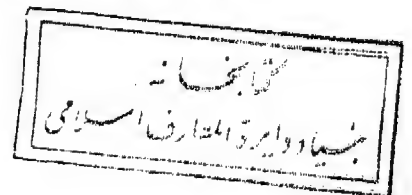 کتابخانه
بنیاد دایرة المعارف اسلامی